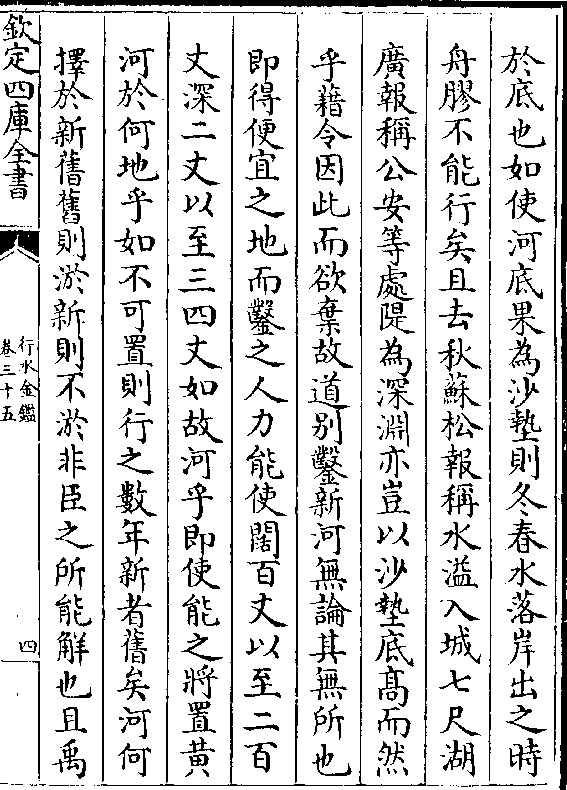 於底也如使河底果為沙墊則冬春水落岸出之時
舟膠不能行矣且去秋蘇松報稱水溢入城七尺湖
廣報稱公安等處隄為深淵亦豈以沙墊底髙而然
乎藉令因此而欲棄故道别鑿新河無論其無所也
即得便宜之地而鑿之人力能使闊百丈以至二百
丈深二丈以至三四丈如故河乎即使能之將置黄
河於何地乎如不可置則行之數年新者舊矣河何
擇於新舊舊則淤新則不淤非臣之所能解也且禹
欽定四庫全書
行水金鑑
卷三十五
四